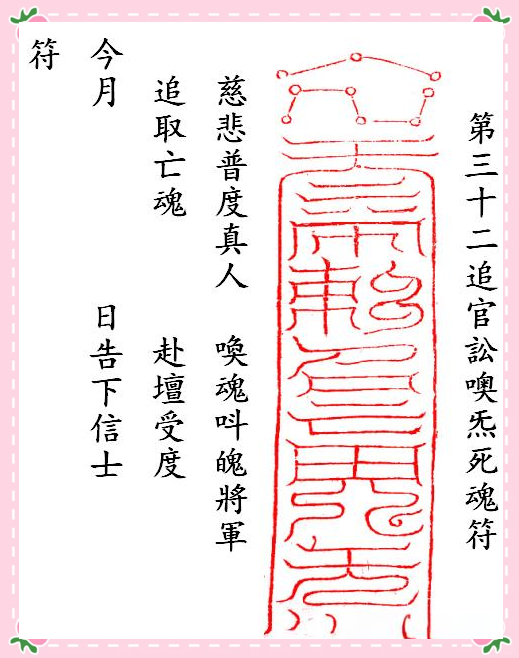 第三十二追官訟噢炁死魂符
慈悲普度真人　喚魂呌魄將軍
追取亡魂　赴壇受度
今月　日告下信士
符